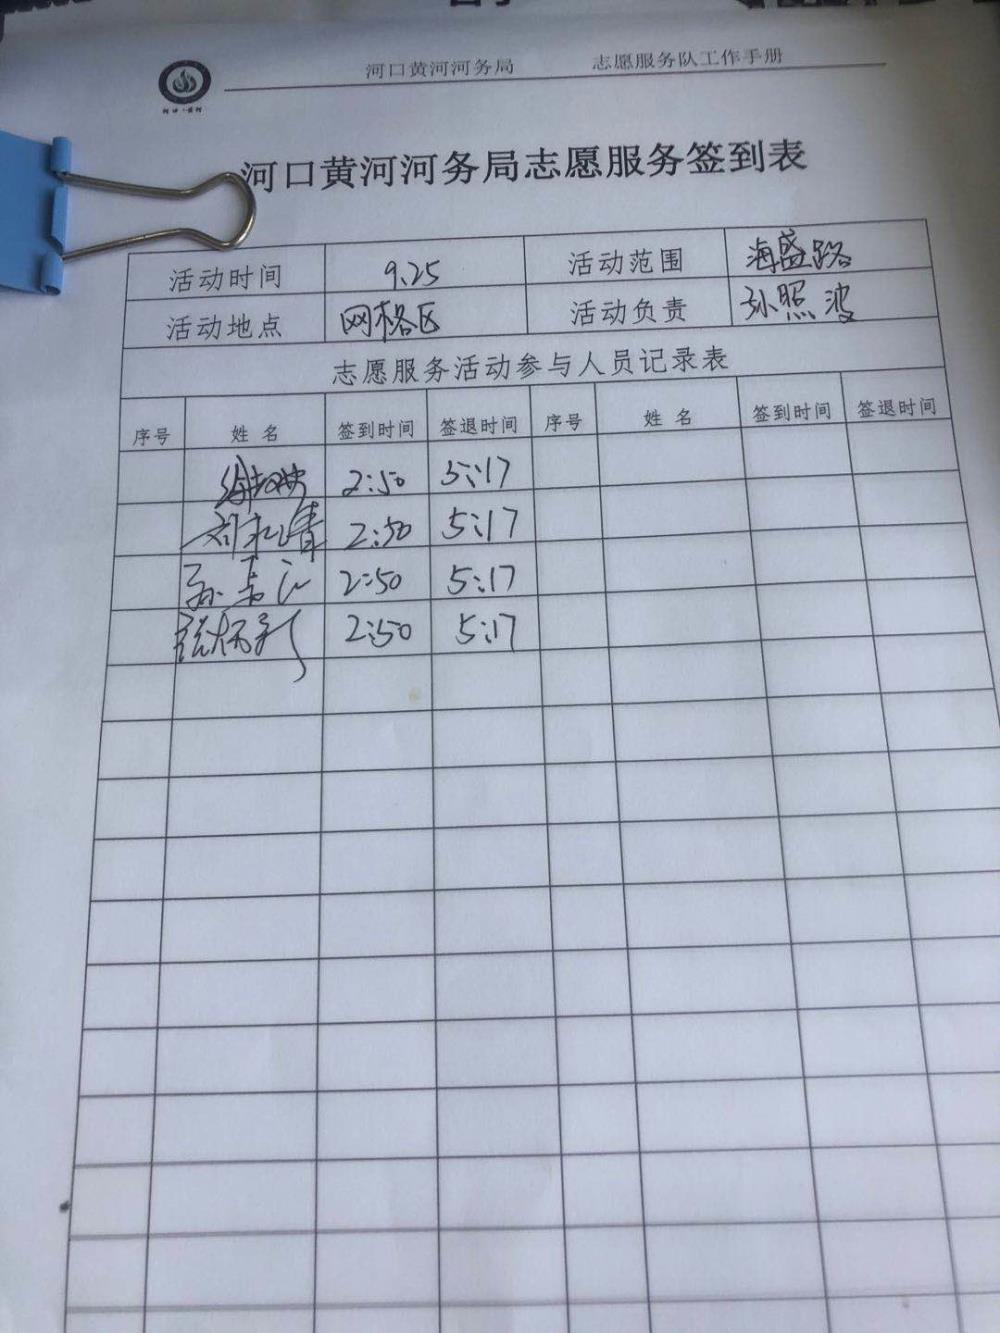 河口黄河河务局 志愿服务队工作手册
河口·黄河
河口黄河河务局志愿服务签到表
活动时间 9.25 活动范围 海盛路
活动地点 网格区 活动负责 孙照波
志愿服务活动参与人员记录表
序号 姓名 签到时间 签退时间 序号 姓名 签到时间 签退时间
2:50 5:17
刘 2:50 5:17
孙 2:50 5:17
张 2:50 5:17